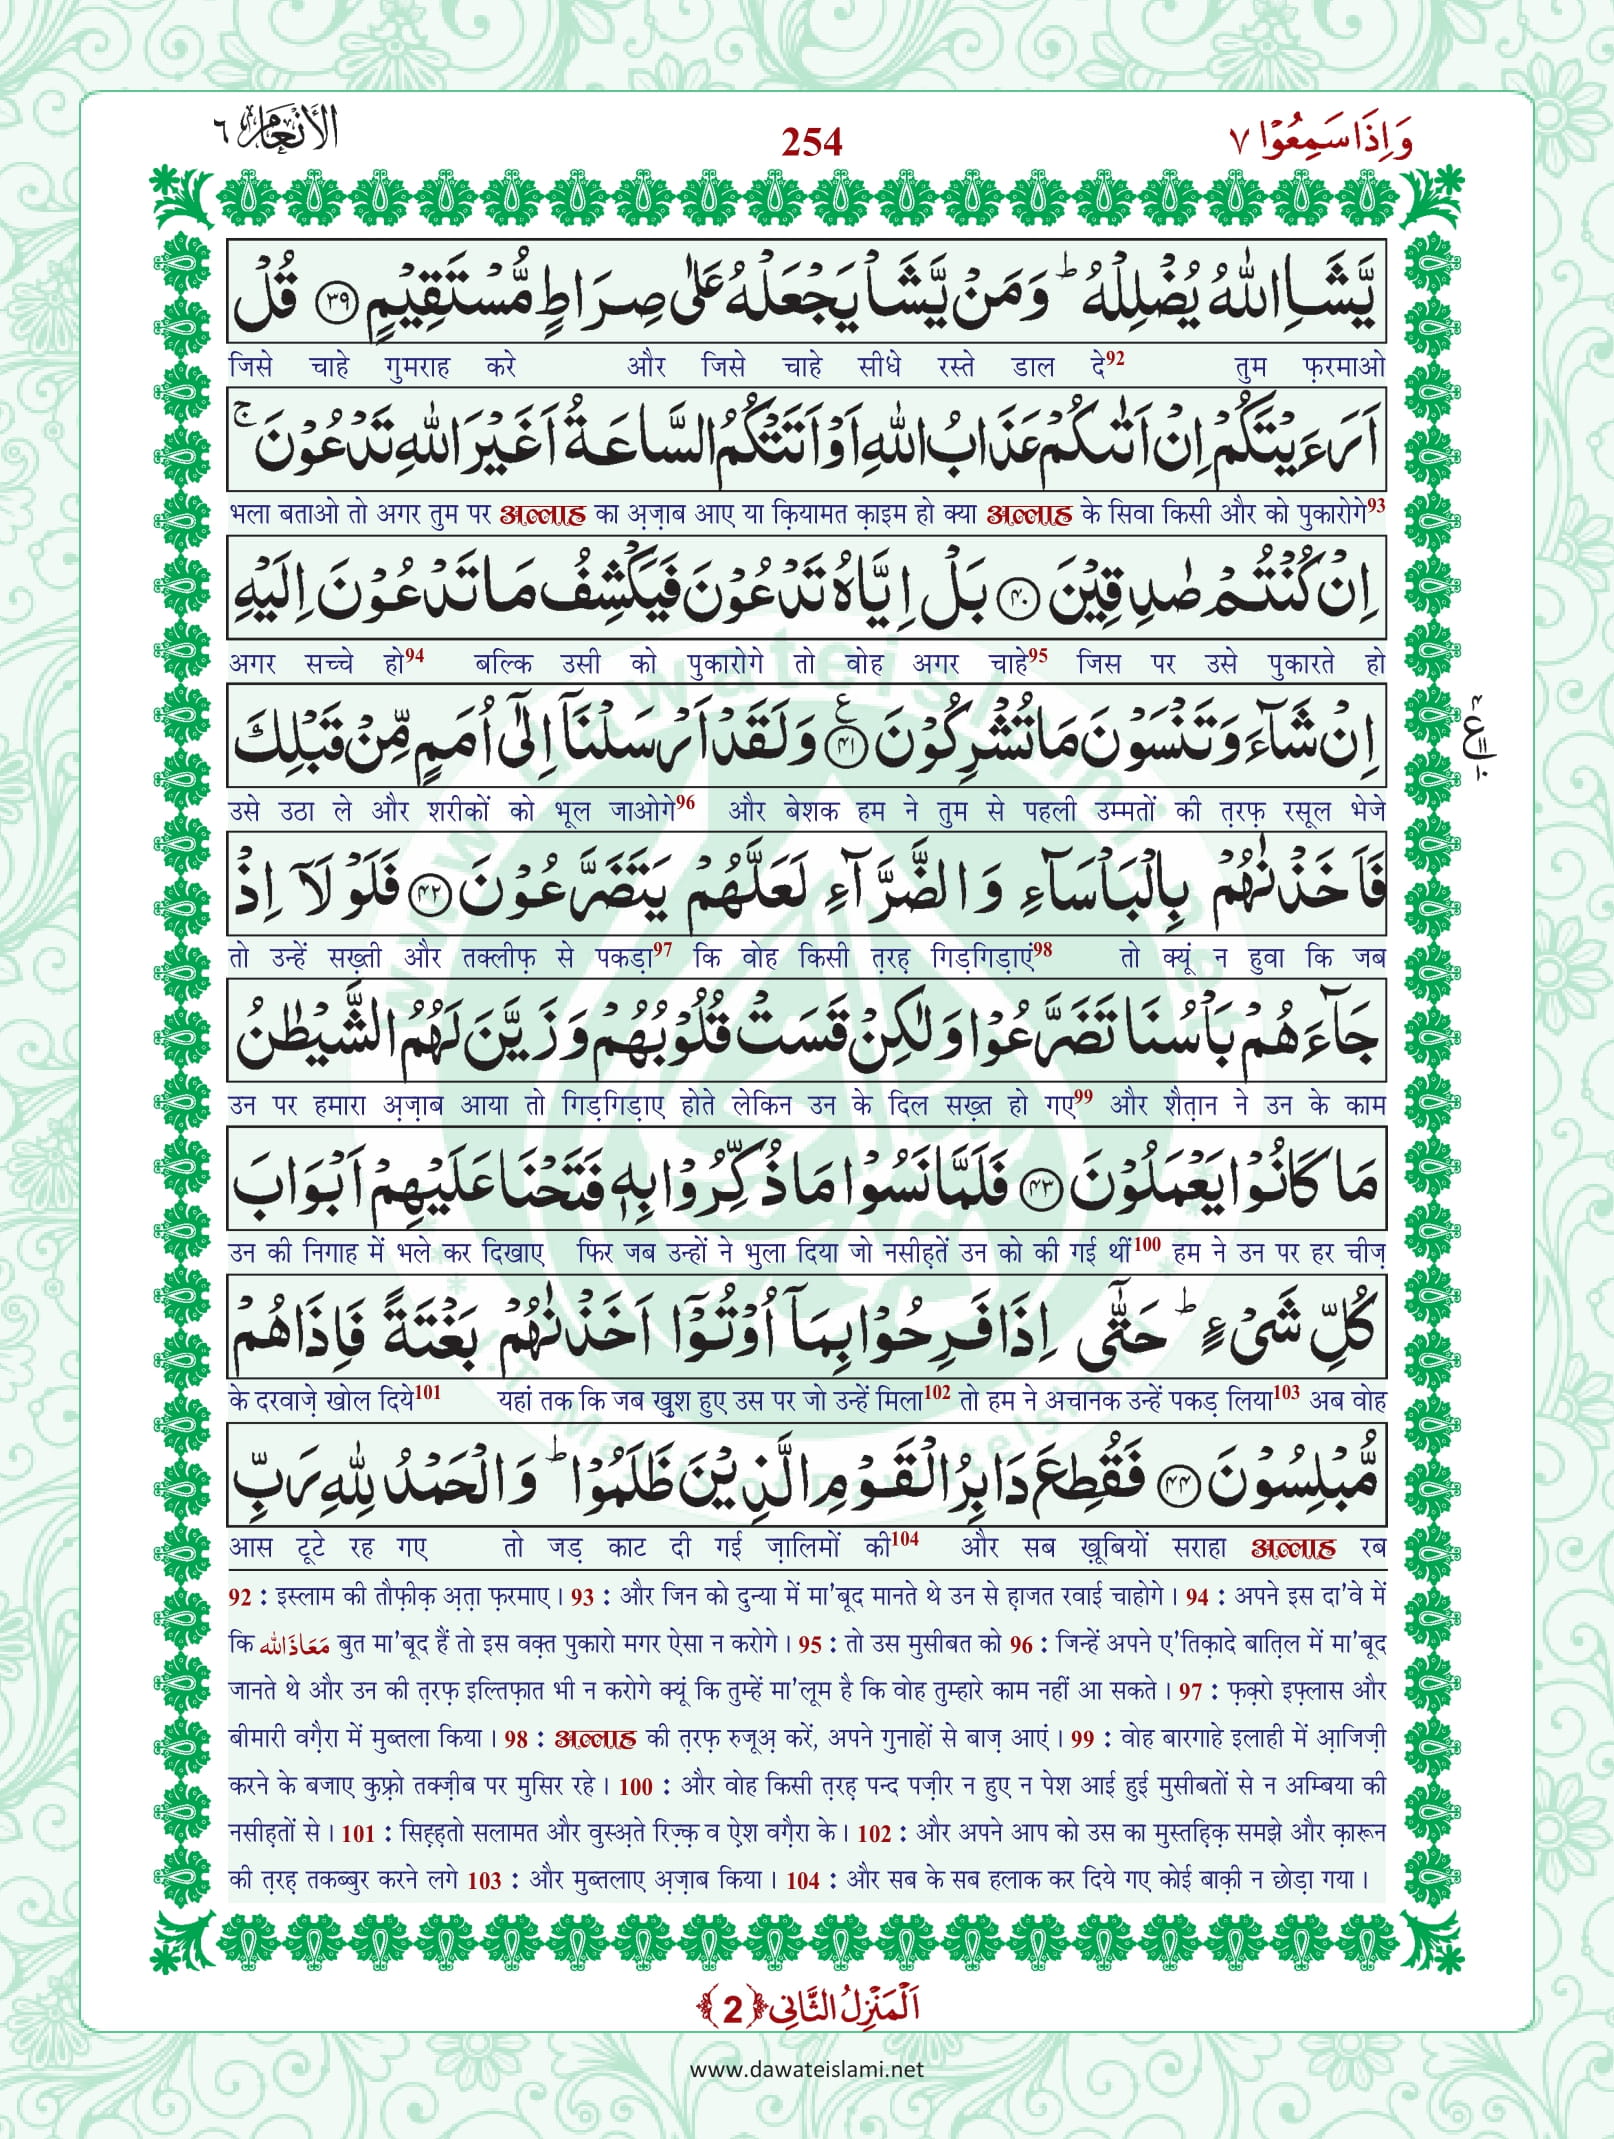 وَاِذَا سَمِعُوْا ٧
254
الأَنْعَام ٦
يَّشَاِ اللّٰهُ يُضْلِلْهُ ؕ وَ مَنْ يَّشَاْ يَجْعَلْهُ عَلٰى صِرَاطٍ مُّسْتَقِیْمٍ ﴿۳۹﴾ قُلْ
जिसे चाहे गुमराह करे और जिसे चाहे सीधे रस्ते डाल दे92 तुम फ़रमाओ
اَرَءَیْتَكُمْ اِنْ اَتٰىكُمْ عَذَابُ اللّٰهِ اَوْ اَتَتْكُمُ السَّاعَةُ اَغَیْرَ اللّٰهِ تَدْعُوْنَ ۚ
भला बताओ तो अगर तुम पर अल्लाह का अ़ज़ाब आए या क़ियामत क़ाइम हो क्या अल्लाह के सिवा किसी और को पुकारोगे93
اِنْ كُنْتُمْ صٰدِقِیْنَ ﴿۴۰﴾ بَلْ اِیَّاهُ تَدْعُوْنَ فَیَكْشِفُ مَا تَدْعُوْنَ اِلَیْهِ
अगर सच्चे हो94 बल्कि उसी को पुकारोगे तो वोह अगर चाहे95 जिस पर उसे पुकारते हो
اِنْ شَآءَ وَ تَنْسَوْنَ مَا تُشْرِكُوْنَ ﴿۴۱﴾ ع وَ لَقَدْ اَرْسَلْنَاۤ اِلٰۤى اُمَمٍ مِّنْ قَبْلِكَ
उसे उठा ले और शरीकों को भूल जाओगे96 और बेशक हम ने तुम से पहली उम्मतों की त़रफ़ रसूल भेजे
فَاَخَذْنٰهُمْ بِالْبَاْسَآءِ وَ الضَّرَّآءِ لَعَلَّهُمْ یَتَضَرَّعُوْنَ ﴿۴۲﴾ فَلَوْ لَاۤ اِذْ
तो उन्हें सख़्ती और तक्लीफ़ से पकड़ा97 कि वोह किसी त़रह़ गिड़गिड़ाएं98 तो क्यूं न हुवा कि जब
جَآءَهُمْ بَاْسُنَا تَضَرَّعُوْا وَ لٰكِنْ قَسَتْ قُلُوْبُهُمْ وَ زَیَّنَ لَهُمُ الشَّیْطٰنُ
उन पर हमारा अ़ज़ाब आया तो गिड़गिड़ाए होते लेकिन उन के दिल सख़्त हो गए99 और शैत़ान ने उन के काम
مَا كَانُوْا یَعْمَلُوْنَ ﴿۴۳﴾ فَلَمَّا نَسُوْا مَا ذُكِّرُوْا بِهٖ فَتَحْنَا عَلَیْهِمْ اَبْوَابَ
उन की निगाह में भले कर दिखाए फिर जब उन्हों ने भुला दिया जो नसीह़तें उन को की गई थीं100 हम ने उन पर हर चीज़
كُلِّ شَیْءٍ ؕ حَتّٰۤى اِذَا فَرِحُوْا بِمَاۤ اُوْتُوْۤا اَخَذْنٰهُمْ بَغْتَةً فَاِذَا هُمْ
के दरवाज़े खोल दिये101 यहां तक कि जब ख़ुश हुए उस पर जो उन्हें मिला102 तो हम ने अचानक उन्हें पकड़ लिया103 अब वोह
مُّبْلِسُوْنَ ﴿۴۴﴾ فَقُطِعَ دَابِرُ الْقَوْمِ الَّذِیْنَ ظَلَمُوْا ؕ وَ الْحَمْدُ لِلّٰهِ رَبِّ
आस टूटे रह गए तो जड़ काट दी गई ज़ालिमों की104 और सब ख़ूबियों सराहा अल्लाह रब
92 : इस्लाम की तौफ़ीक़ अ़त़ा फ़रमाए । 93 : और जिन को दुन्या में मा'बूद मानते थे उन से ह़ाजत रवाई चाहोगे । 94 : अपने इस दा'वे में
कि مَعَاذَاللّٰه बुत मा'बूद हैं तो इस वक़्त पुकारो मगर ऐसा न करोगे । 95 : तो उस मुसीबत को 96 : जिन्हें अपने ए'तिक़ादे बात़िल में मा'बूद
जानते थे और उन की त़रफ़ इल्तिफ़ात भी न करोगे क्यूं कि तुम्हें मा'लूम है कि वोह तुम्हारे काम नहीं आ सकते । 97 : फ़क़्रो इफ़्लास और
बीमारी वग़ैरा में मुब्तला किया । 98 : अल्लाह की त़रफ़ रुजूअ़ करें, अपने गुनाहों से बाज़ आएं । 99 : वोह बारगाहे इलाही में आ़जिज़ी
करने के बजाए कुफ़्रो तक्ज़ीब पर मुसिर रहे । 100 : और वोह किसी त़रह़ पन्द पज़ीर न हुए न पेश आई हुई मुसीबतों से न अम्बिया की
नसीह़तों से । 101 : सिह़्ह़तो सलामत और वुस्अ़ते रिज़्क़ व ऐ़श वग़ैरा के । 102 : और अपने आप को उस का मुस्तह़िक़ समझे और क़ारून
की त़रह़ तकब्बुर करने लगे 103 : और मुब्तलाए अ़ज़ाब किया । 104 : और सब के सब हलाक कर दिये गए कोई बाक़ी न छोड़ा गया ।
اَلْمَنْزِلُ الثَّانِی ﴿2﴾
www.dawateislami.net